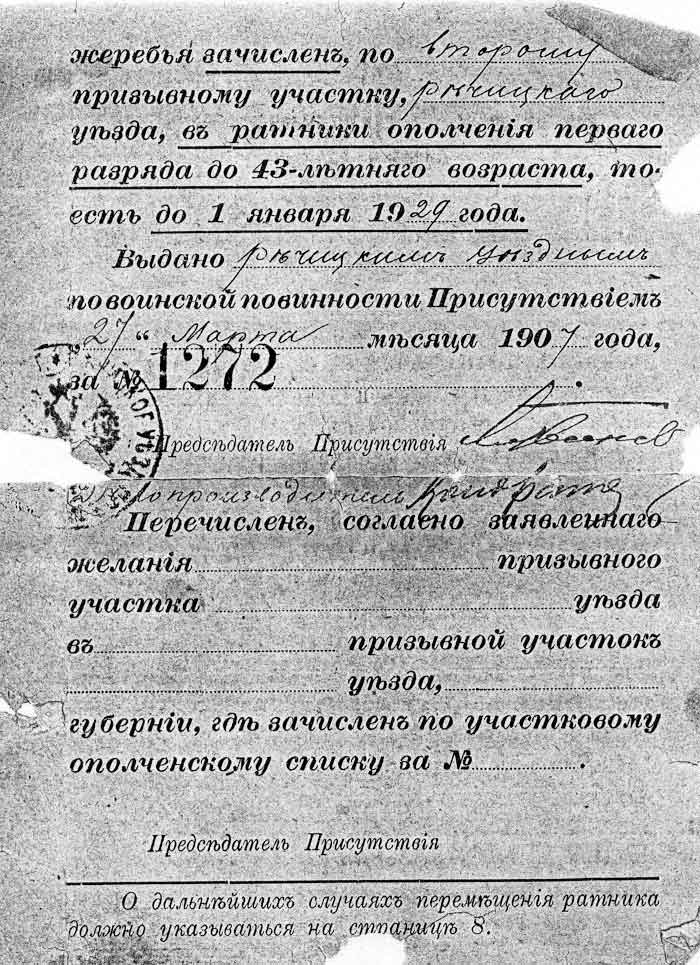 жеребья зачисленъ, по второму
призывному участку, Рѣчицкаго
уѣзда, въ ратники ополченія перваго
разряда до 43-лѣтняго возраста, то-
есть до 1 января 1929 года.
Выдано Рѣчицкимъ Уѣзднымъ
по воинской повинности Присутствіемъ
„27“ Марта мѣсяца 1907 года,
за № 1272.
Предсѣдатель Присутствія
Дѣлопроизводитель
Перечисленъ, согласно заявленнаго
желанія призывного
участка уѣзда
въ призывной участокъ
уѣзда,
губерніи, гдѣ зачисленъ по участковому
ополченскому списку за № .
Предсѣдатель Присутствія
О дальнѣйшихъ случаяхъ перемѣщенія ратника
должно указываться на страницѣ 8.